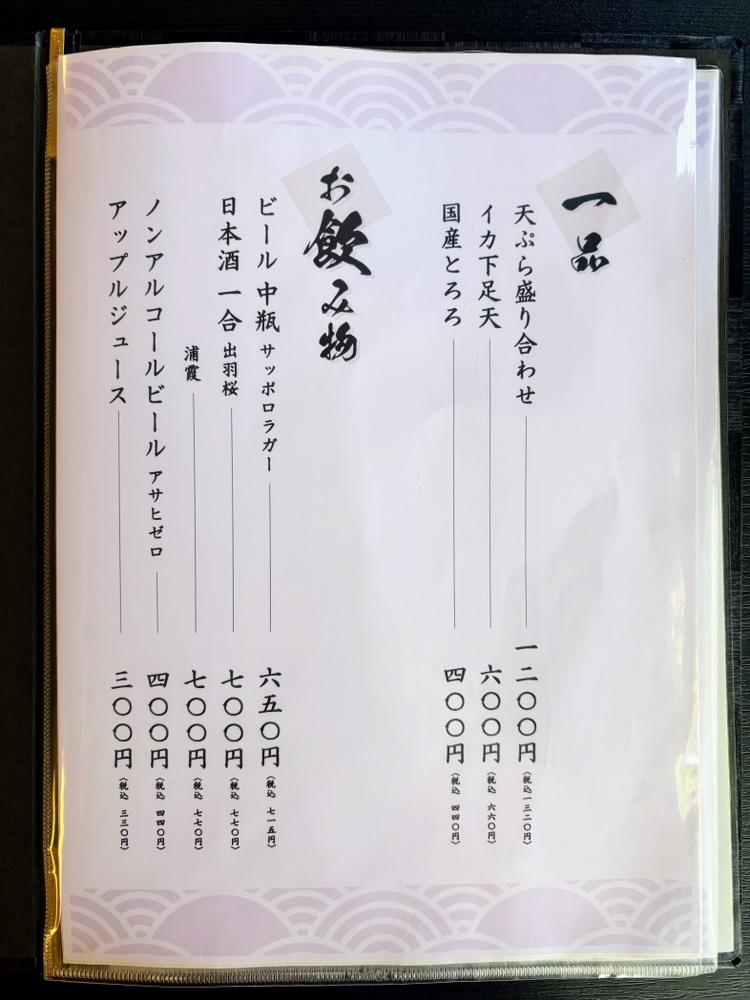 一品
天ぷら盛り合わせ 一二〇〇円(税込一三二〇円)
イカ下足天 六〇〇円(税込 六六〇円)
国産とろろ 四〇〇円(税込 四四〇円)
お飲み物
ビール 中瓶 サッポロラガー 六五〇円(税込 七一五円)
日本酒 一合 出羽桜 七〇〇円(税込 七七〇円)
浦霞 七〇〇円(税込 七七〇円)
ノンアルコールビール アサヒゼロ 四〇〇円(税込 四四〇円)
アップルジュース 三〇〇円(税込 三三〇円)